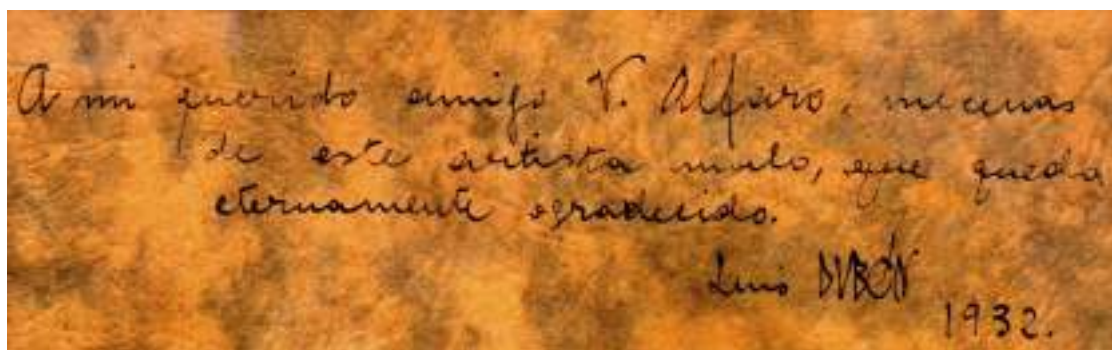 A mi querido amigo V. Alfaro, mecenas
de este artista malo, que queda
eternamente agradecido.
Luis DUBÓN
1932.